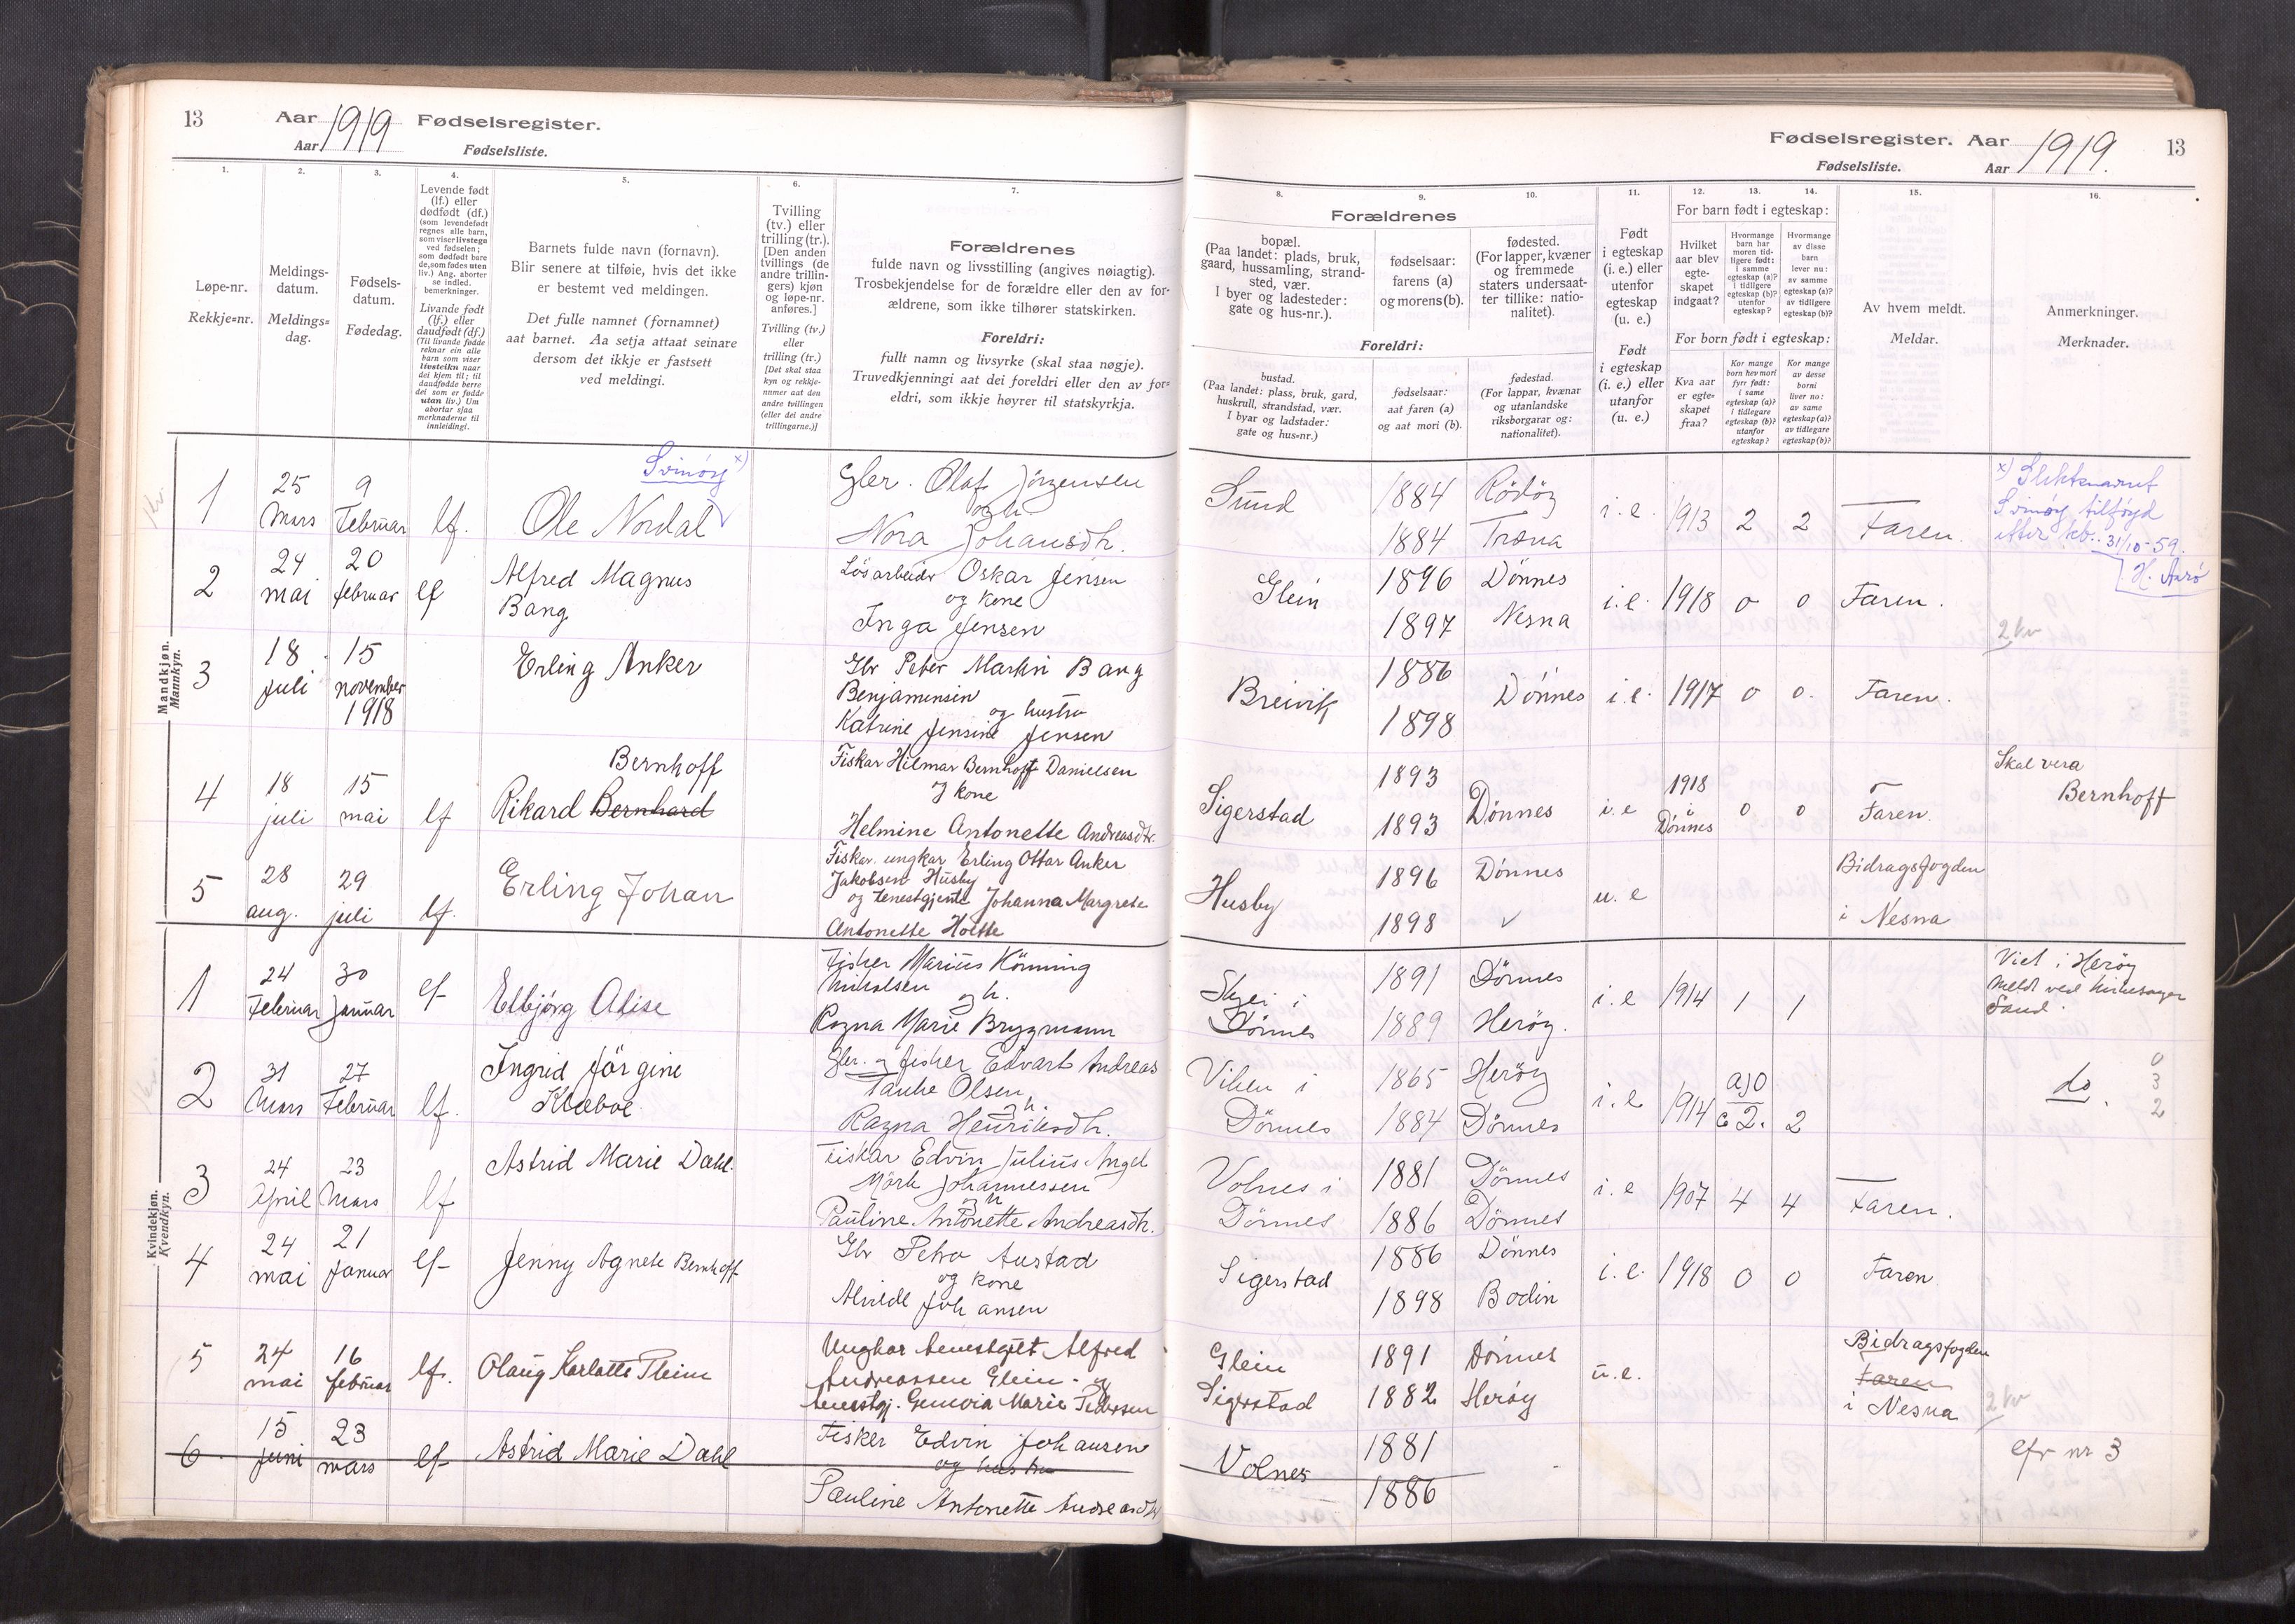 13
Aar 1919 Fødselsregister.
Aar Fødselsliste.
1.
2.
3.
4.
5.
6.
7.
Løpe-nr.
Rekkje=nr.
Meldings-
datum.
Meldings=
dag.
Fødsels-
datum.
Fødedag.
Levende født
(lf.) eller
dødfødt (df.)
(som levendefødt
regnes alle barn,
som viser livstegn
ved fødselen;
som dødfødt bare
de, som fødes uten
liv.) Ang. aborter
se indled.
bemerkninger.
Livande født
(lf.) eller
daudfødt (df.)
(Til livande fødde
reknar ein alle
barn som viser
livsteikn naar
dei kjem til; til
daudfødde berre
dei som er fødde
utan liv.) Um
abortar sjaa
merknaderne til
innleidingi.
Barnets fulde navn (fornavn).
Blir senere at tilføie, hvis det ikke
er bestemt ved meldingen.
Det fulle namnet (fornamnet)
aat barnet. Aa setja attaat seinare
dersom det ikkje er fastsett
ved meldingi.
Tvilling
(tv.) eller
trilling (tr.).
[Den anden
tvillings (de
andre trillin-
gers) kjøn
og løpe-nr.
anføres.]
Tvilling (tv.)
eller
trilling (tr.)
[Det skal staa
kyn og rekkje-
numer aat den
andre tvillingen
(eller dei andre
trillingarne.)]
Forældrenes
fulde navn og livsstilling (angives nøiagtig).
Trosbekjendelse for de forældre eller den av for-
ældrene, som ikke tilhører statskirken.
Foreldri:
fullt namn og livsyrke (skal staa nøgje).
Truvedkjenningi aat dei foreldri eller den av for=
eldri, som ikkje høyrer til statskyrkja.
Mandkjøn.
Mannkyn.
1
25 Mars
9 Februar
lf.
Svinøy x)
Ole Nordal
Gbr. Olaf Jörgensen
og h.
Nora Johansdtr.
2
24 mai
20 februar
lf
Alfred Magnus
Bang
Lösarbeider Oskar Jensen
og kone
Inga Jensen
3
18 juli
15 november 1918
Erling Anker
Gbr Peter Martin Bang
Benjaminsen
og hustru
Katrine Jensine Jensen
4
18 juli
15 mai
lf
Bernhoff
Rikard Bernhard
Fiskar Hilmar Bernhoff Danielsen
og kone
Helmine Antonette Andreasdtr.
5
28 aug.
29 juli
lf.
Erling Johan
Fiskar. ungkar Erling Ottar Anker
Jakobsen Husby
og tenestgjente Johanna Margrete
Antonette Holte
Kvindekjøn.
Kvendkyn.
1
24 Februar
30 Januar
lf
Elbjörg Alise
Fisker Marius Könning
Mikalsen
og h.
Ragna Marie Brygmann
2
31 Mars
27 Februar
lf.
Ingrid Jörgine
Klæboe
Gbr. og fisker Edvart Andreas
Tanke Olsen
og h.
Ragna Henriksdtr.
3
24 April
23 Mars
lf
Astrid Marie Dahl.
Fiskar Edvin Julius Angel
Mörk Johannessen
og h
Pauline Antonette Andreasdtr.
4
24 mai
21 Januar
lf
Jenny Agnete Bernhoff
Gbr Petro Austad
og kone
Alvilde Johansen
5
24 mai
16 februar
lf.
Olaug Karlotte Pleim
Ungkar tenestgut Alfred
Andreassen Glein - og
tenestgj. Genovia Marie Pedersen
6
15 Juni
23 mars
lf
Astrid Marie Dahl
Fisker Edvin Johansen
og hustru
Pauline Antonette Andreasdtr
Fødselsregister. Aar 1919.
13
Fødselsliste. Aar
8.
9.
10.
11.
12.
13.
14.
15.
16.
Forældrenes
bopæl.
(Paa landet: plads, bruk,
gaard, hussamling, strand-
sted, vær.
I byer og ladesteder:
gate og hus-nr.).
fødselsaar:
farens (a)
og morens (b).
fødested.
(For lapper, kvæner
og fremmede
staters undersaat-
ter tillike: natio-
nalitet).
Foreldri:
bustad.
(Paa landet: plass, bruk, gard,
huskrull, strandstad, vær.
I byar og ladstader:
gate og hus=nr.)
fødselsaar:
aat faren (a)
og aat mori (b).
fødestad.
(For lappar, kvænar
og utanlandske
riksborgarar og:
nationalitet).
Født
i egteskap
(i. e.) eller
utenfor
egteskap
(u. e.)
Født
i egteskap
(i. e.) eller
utanfor
(u. e.)
For barn født i egteskap:
Hvilket
aar blev
egte-
skapet
indgaat?
Hvormange
barn har
moren tid-
ligere født:
i samme
egteskap (a)?
i tidligere
egteskap (b)?
utenfor
egteskap?
Hvormange
av disse
barn
lever nu:
av samme
egteskap (a)?
av tidligere
egteskap (b)?
For born født i egteskap:
Kva aar
er egte=
skapet
fraa?
Kor mange
born hev mori
fyrr født:
i same
egteskap (a)?
i tidlegare
egteskap (b)?
utanfor
egteskap?
Kor mange
av desse
borni
liver no:
av same
egteskap (a)?
av tidlegare
egteskap (b)?
Av hvem meldt.
Meldar.
Anmerkninger.
Merknader.
Sund
1884 Rödöy
1884 Træna
i. e. 1913 2 2 Faren.
x) Slektsnavnet
Svinøy tilføyd
etter kb. 31/10-59.
H. Aarö
Glein
1896 Dönnes
1897 Nesna
i. e. 1918 0 0 Faren.
2 kv
Breivik
1886
1898
Dónnes i. e. 1917 0 0. Faren.
Sigerstad
1893
1893
Dónnes i. e
1918
i
Dónnes
0 0 Faren.
Skal vera
Bernhoff
Husby
1896 Dónnes
1898 ✓
u. e
Bidragsfogden
i Nesna
Skei i
Dönnes
1891 Dönnes
1889 Herøy.
i. e 1914 1 1
Viet i Herøy
Meldt ved kirkesanger
Sand.
Viken i
Dönnes
1865 Herøy
1884 Dönnes
i. e 1914
a) 0
c 2. 2
do.
0
3
2
Volnes i
Dönnes
1881 Dönnes
1886 Dönnes
i. e 1907 4 4 Faren.
Sigerstad
1886 Dönnes
1898 Bodin
i. e. 1918 0 0 Faren
Glein
Sigerstad
1891 Dönnes
1882 Herøy
u. e.
Bidragsfogden
Faren
i Nesna
2 kv
Volnes
1881
1886
cfr nr 3